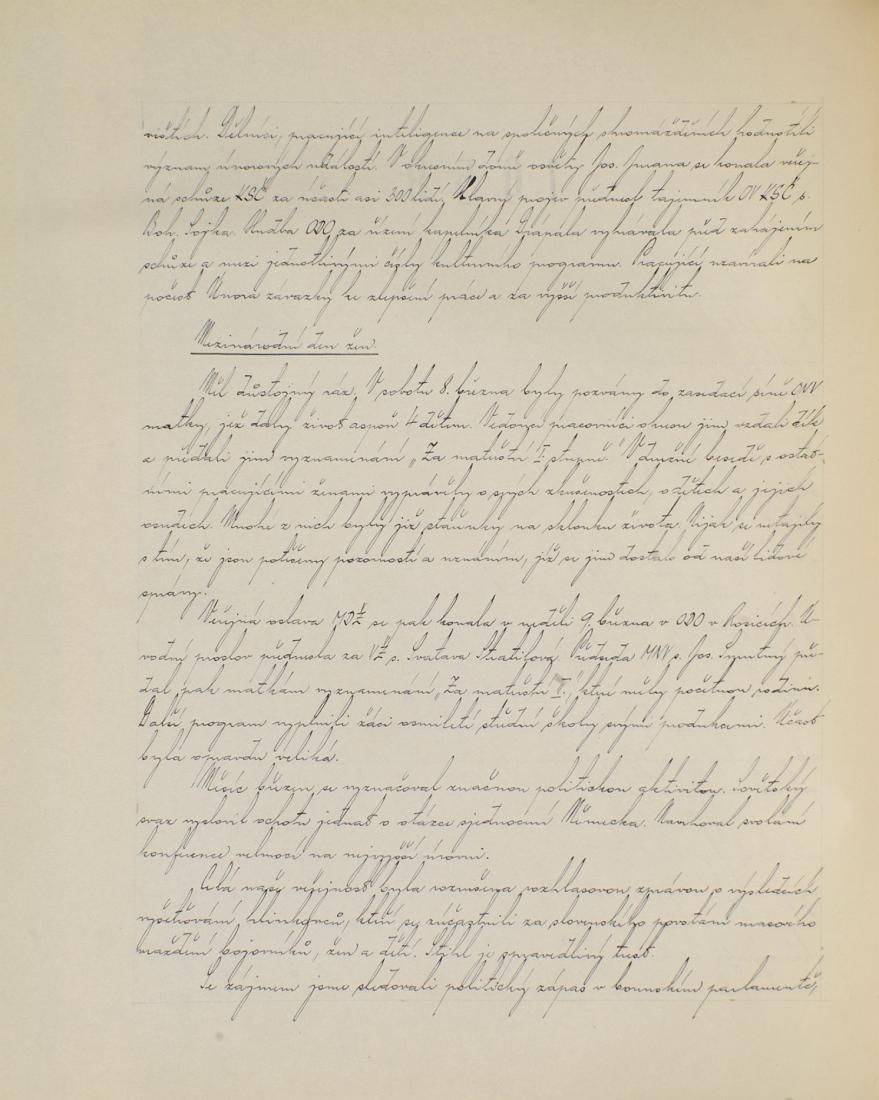 vištích. Dělníci, pracující inteligence na společných shromážděních hodnotili
význam únorových událostí. V okresním domě osvěty Jos. Jurana se konala veřej-
ná schůze KSČ za účasti asi 300 lidí. Hlavní projev přednesl tajemník OV KSČ s.
Boh. Sojka. Hudba ODO za řízení kapelníka vyhrávala před zahájením
schůze a mezi jednotlivými čísly kulturního programu. Pracující uzavírali na
počest Února závazky ke zlepšení práce a za vyšší produktivitu.
Mezinárodní den žen.
Měl důstojný ráz. V sobotu 8. března byly pozvány do zasedací síně ONV
matky, jež daly život aspoň 4 dětem. Vedoucí pracovníci okresu jim vzdali dík
a předali jim vyznamenání „Za mateřství I. stupně." V družné besedě s ostat-
ními pracujícími ženami vyprávěly o svých zkušenostech, o dětech a jejich
osudech. Mnohé z nich byly již stařenky na sklonku života. Nijak se netajily
s tím, že jsou potěšeny pozorností a uznáním, jež se jim dostalo od naší lidové
správy.
Veřejná oslava MDŽ se pak konala v neděli 9. března v ODO v Rosicích. Ú-
vodní proslov přednesla za VŽ s. Svatava Stratilová. Předseda MNV s. Jos. Smutný pře-
dal pak matkám vyznamenání „Za mateřství I.", které měly početnou rodinu.
Další program vyplnili žáci osmileté střední školy svými produkcemi. Účast
byla opravdu veliká.
Měsíc březen se vyznačoval značnou politickou aktivitou. Sovětský
svaz vyslovil ochotu jednat o otázce sjednocení Německa. Navrhoval svolání
konference velmocí na nejvyšší úrovni.
Celá naše veřejnost byla vzrušena rozhlasovou zprávou o výsledcích
vyšetřování hlinkovců, kteří se zúčastnili za slovenského povstání masového
vraždění bojovníků, žen a dětí. Stihl je spravedlivý trest.
Se zájmem jsme sledovali politický zápas v bonnském parlamentě,